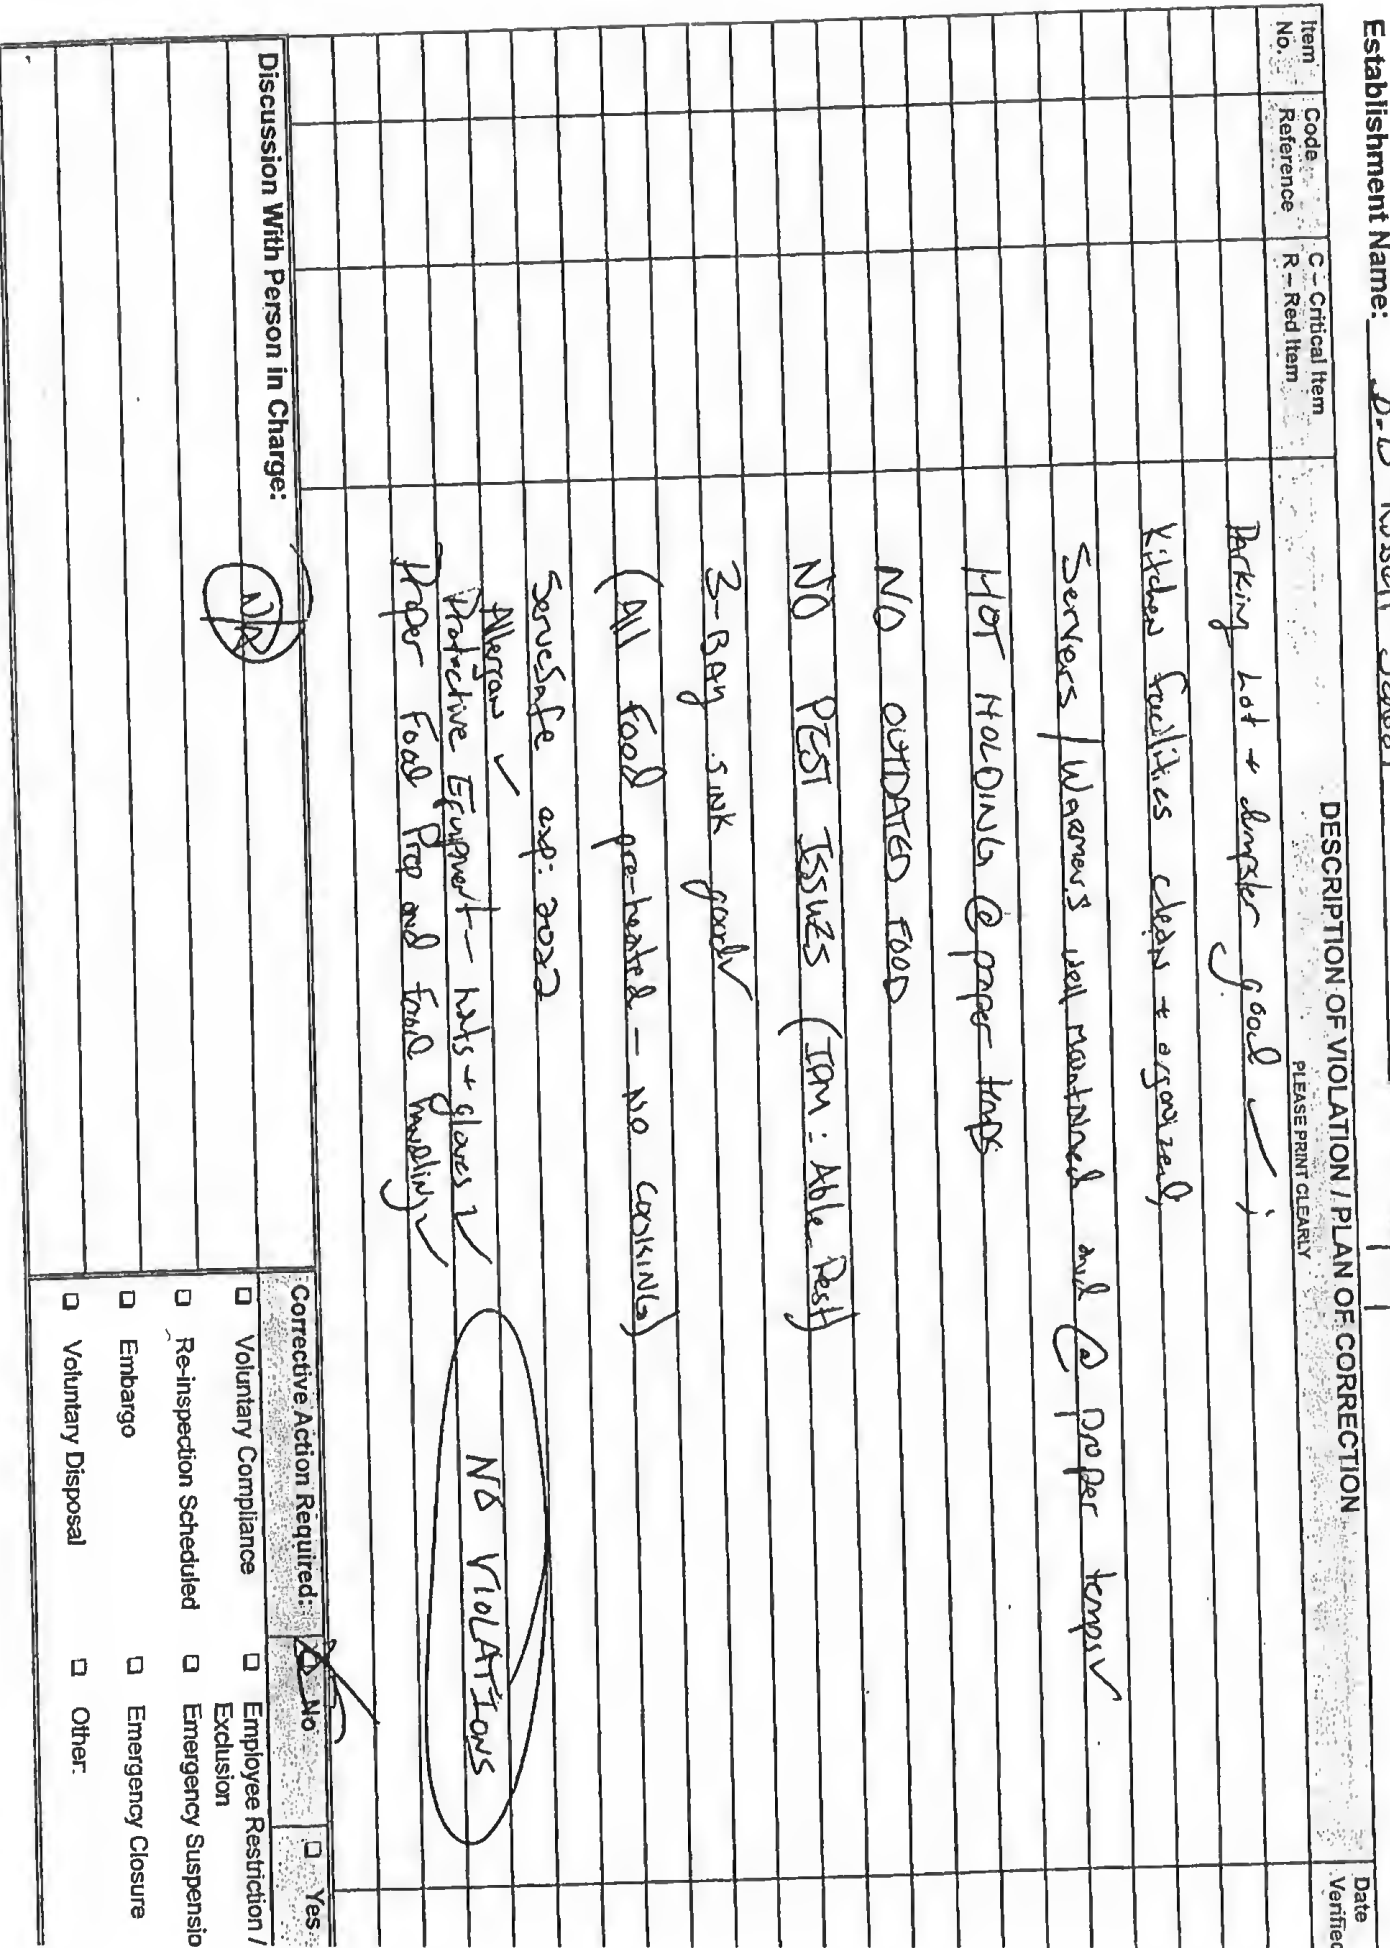 Establishment Name:
Item No.
Code Reference
C – Critical Item
R – Red Item
DESCRIPTION OF VIOLATION / PLAN OF CORRECTION
PLEASE PRINT CLEARLY
Date Verified
Parking Lot + dumpster good ✓ ;
Kitchen facilities clean + organized,
Servers / Warmers well maintained and @ proper temps ✓
HOT HOLDING @ proper temps
NO OUTDATED FOOD
NO PEST ISSUES (IPM: Able Pest)
3-BAY SINK good ✓
(All food pre-heated - NO COOKING)
ServeSafe exp: 2022
Allergan ✓
Protective Equipment - hats + gloves ✓
Proper Food Prep and Food handling ✓
NO VIOLATIONS
Discussion With Person in Charge:
N/A
Corrective Action Required:
No
☐ Yes
☐ Voluntary Compliance
☐ Employee Restriction / Exclusion
☐ Re-inspection Scheduled
☐ Emergency Suspensio
☐ Embargo
☐ Emergency Closure
☐ Voluntary Disposal
☐ Other: